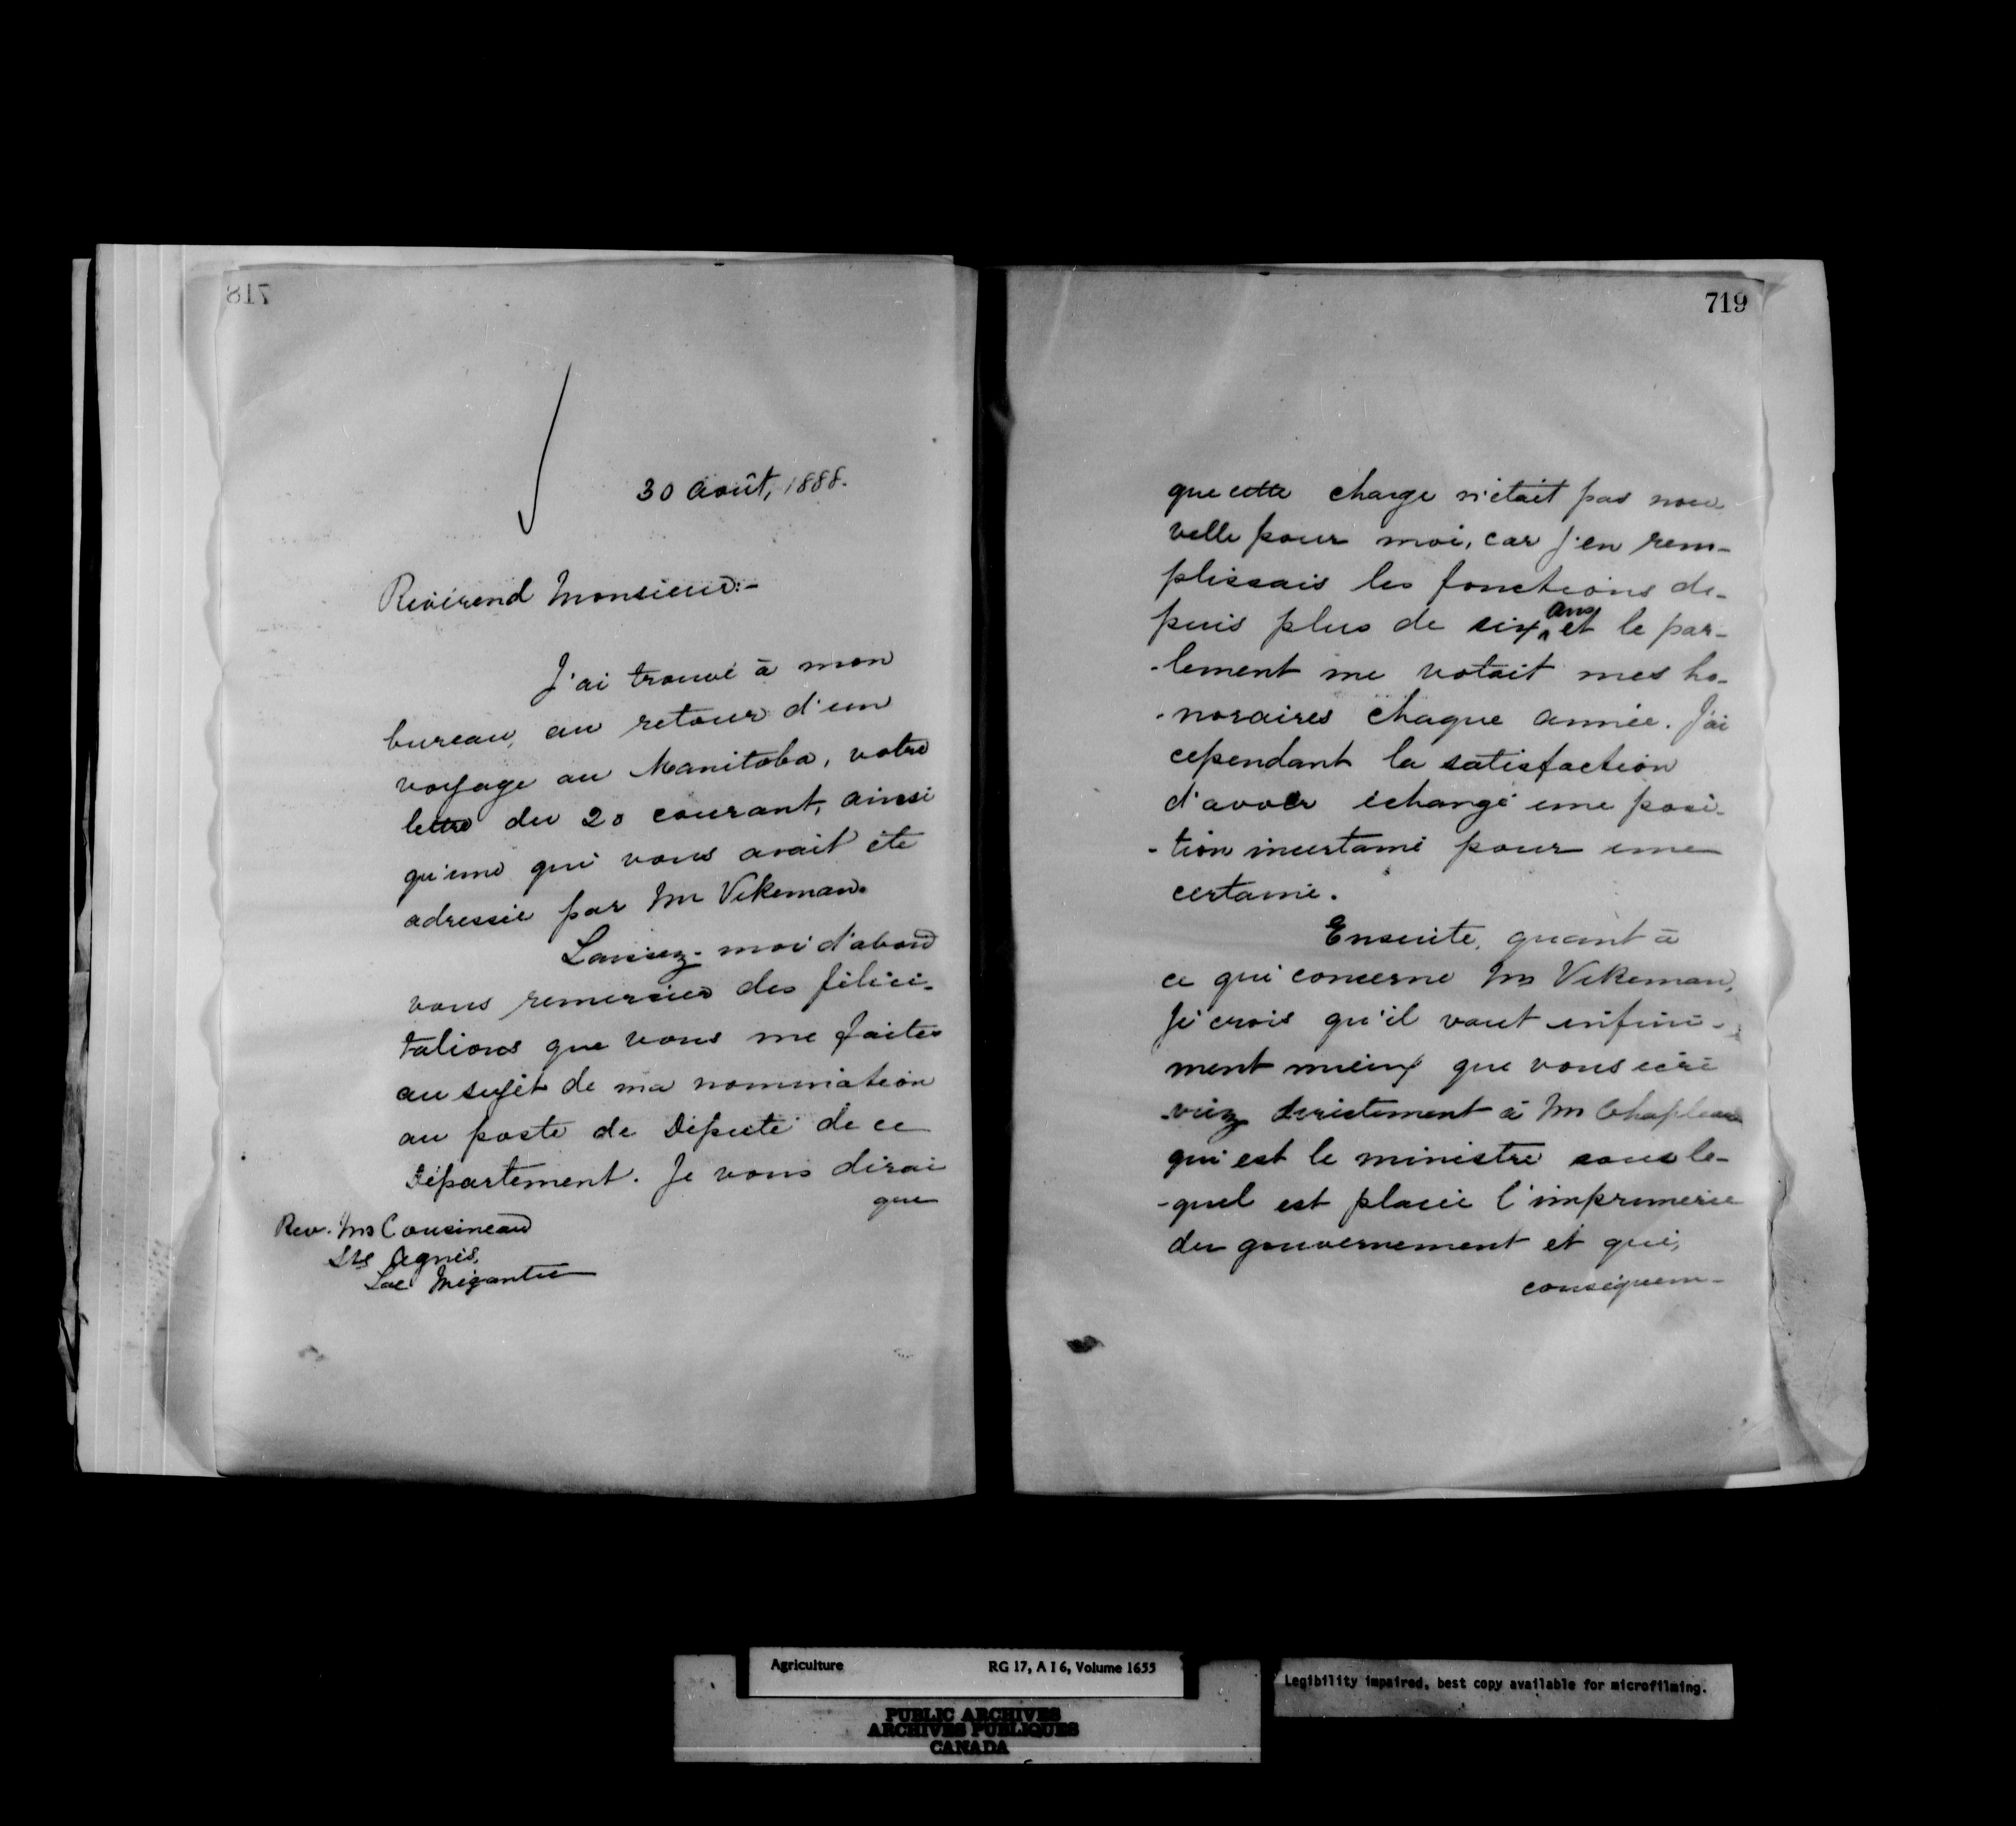 718
30 Août, 1888.
Révérend Monsieur:-
J'ai trouvé à mon
bureau, au retour d'un
voyage au Manitoba, votre
lettre du 20 courant, ainsi
qu'une qui vous avait été
adressée par Mr Vekeman.
Laissez-moi d'abord
vous remercier des félici-
tations que vous me faites
au sujet de ma nomination
au poste de Député de ce
Département. Je vous dirai
que
Rev. Mr Cousineau
Ste Agnès,
Lac Mégantic
719
que cette charge n'était pas nou
velle pour moi, car j'en rem-
plissais les fonctions de-
puis plus de six ans et le par-
-lement me votait mes ho-
-noraires chaque année. J'ai
cependant la satisfaction
d'avoir échangé une posi-
-tion incertaine pour une
certaine.
Ensuite, quant à
ce qui concerne Mr Vekeman,
je crois qu'il vaut infini-
ment mieux que vous écri
-viez directement à Mr Chapleau
qui est le ministre sous le-
-quel est placée l'imprimerie
du gouvernement et qui,
conséquem-
Agriculture RG 17, A I 6, Volume 1655
PUBLIC ARCHIVES
ARCHIVES PUBLIQUES
CANADA
Legibility impaired, best copy available for microfilming.